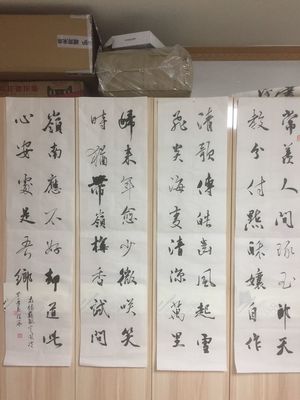 常羨人间琢玉郎天
教分付點酥孃自作
清歌傳皓齒風起雪
飛炎海變清涼萬里
歸來年愈少微咲笑
時猶帶嶺梅香試問
嶺南應不好却道此
心安處是吾鄉